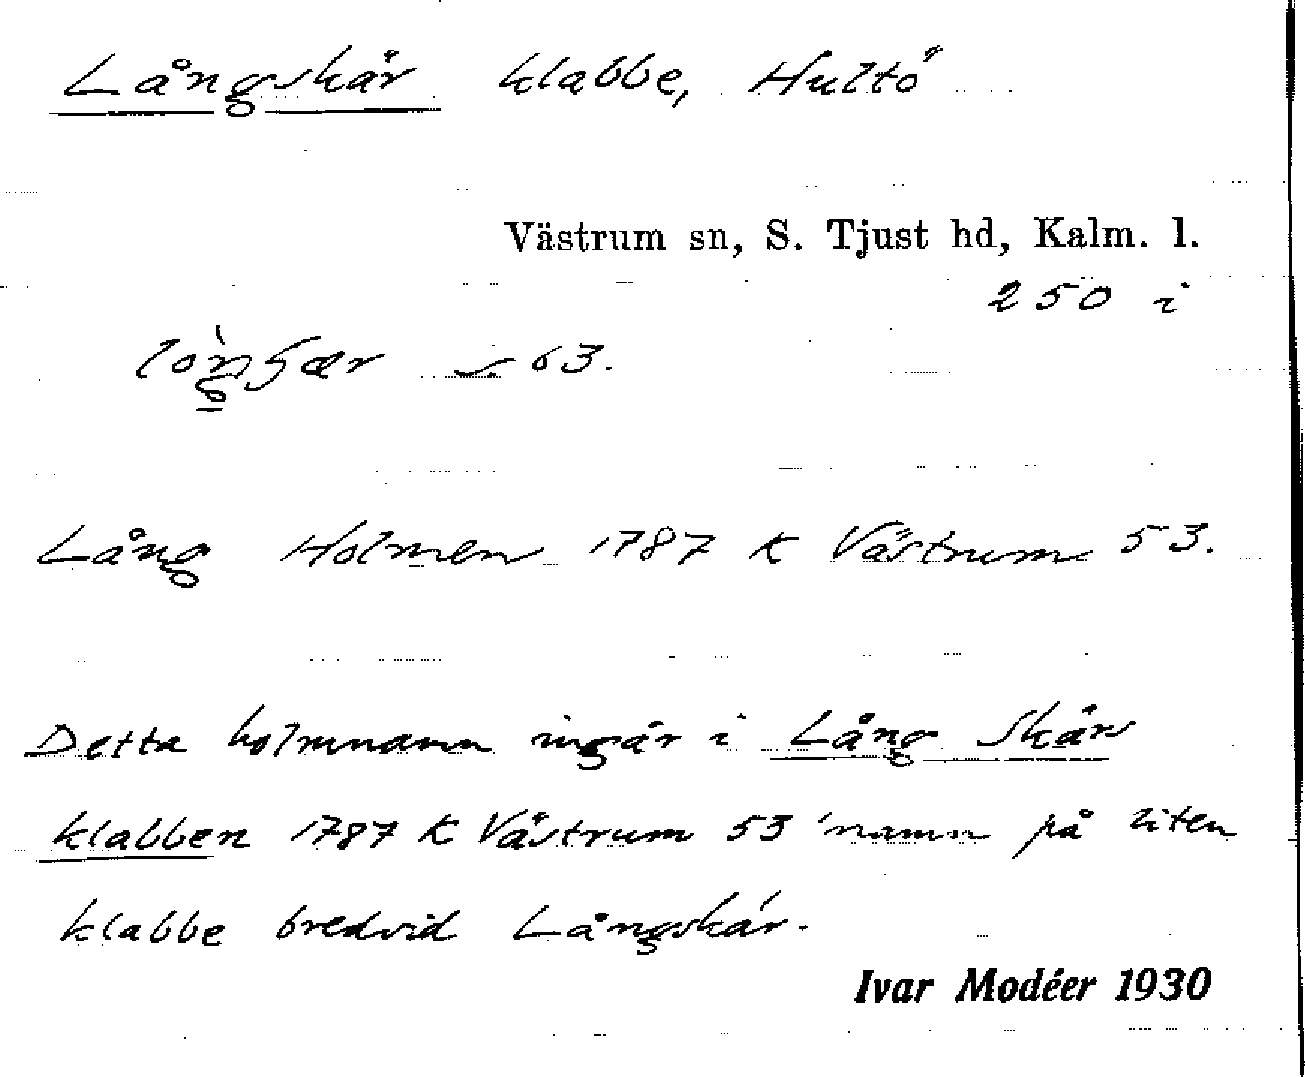 Långskär klabbe, Hultö
Västrum sn, S. Tjust hd, Kalm. l.
250 i
63.
Lång Holmen 1787 K Västrum 53.
Detta holmnamn ingår i Lång Skärs
klabben 1787 K Västrum 53 namn på liten
klabbe bredvid Långskär.
Ivar Modéer 1930